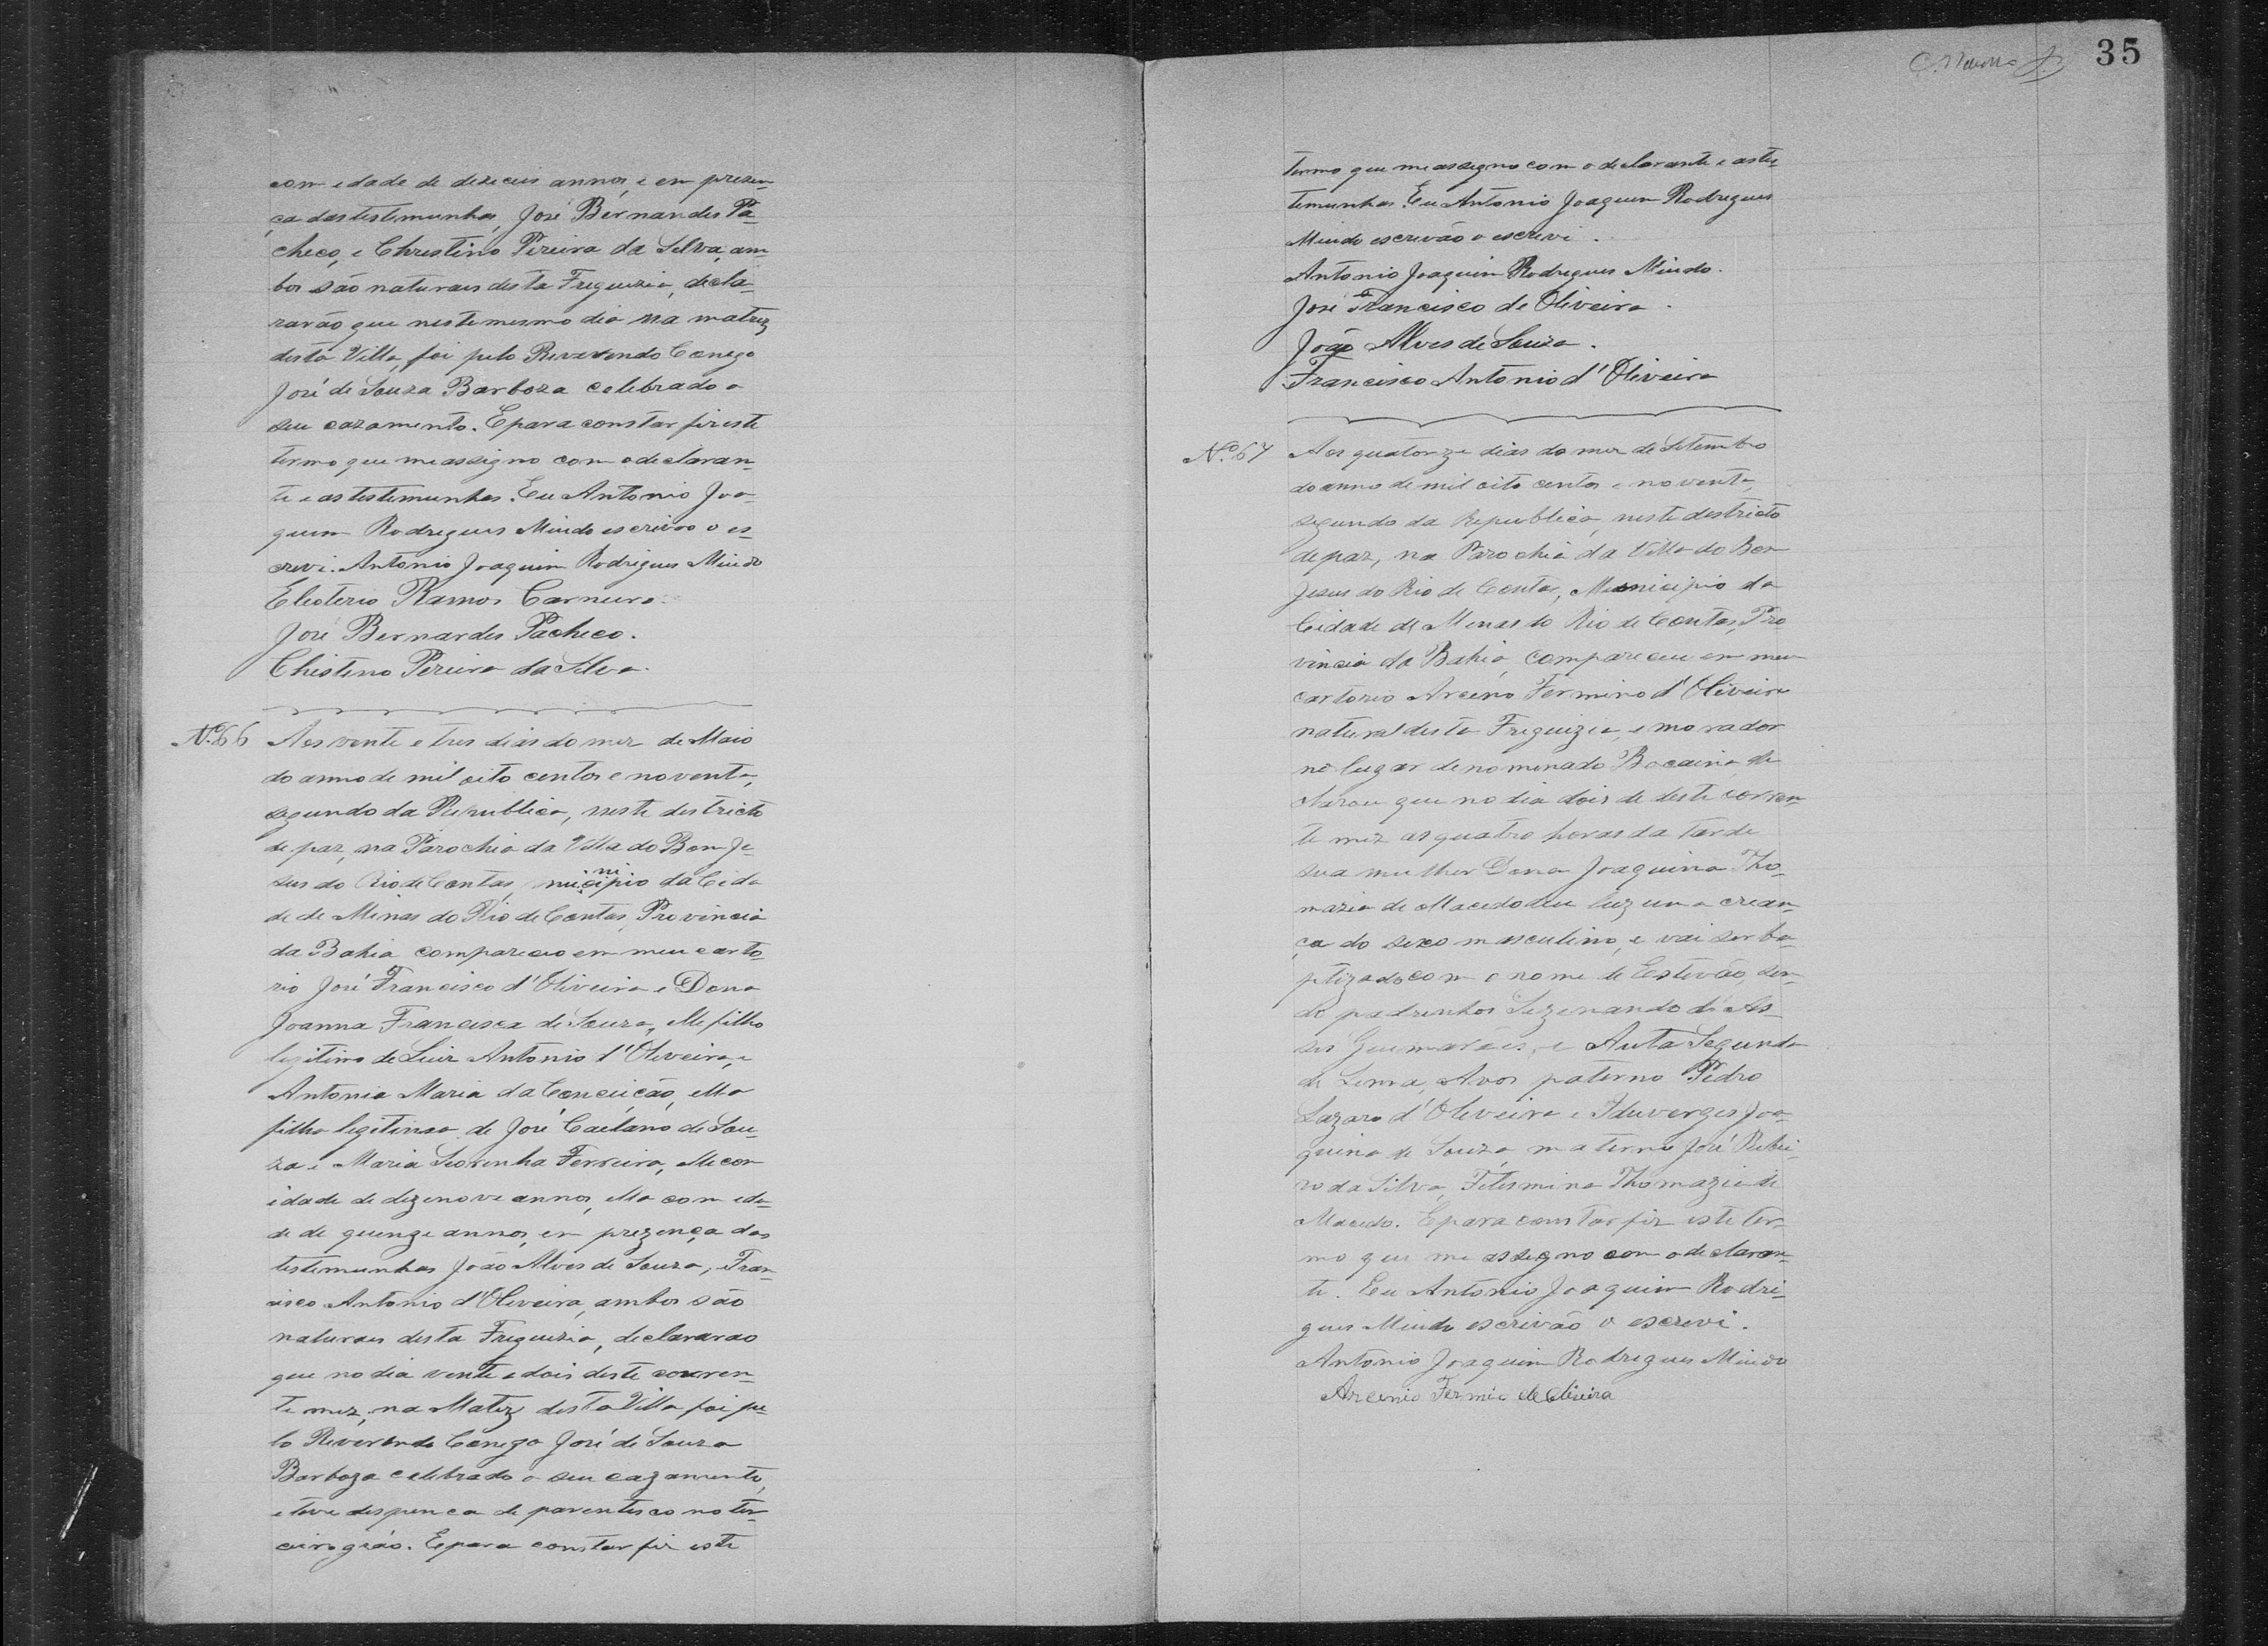 com edade de dezeceis annos, e em prezen-
ça das testemunhas, José Bernardes Pa-
checo, e Christino Pereira da Silva, am-
bos são naturaes desta Freguezia, decla-
rarão que neste mesmo dia na matriz
desta Villa, foi pelo Reverendo Conego
José de Souza Barboza celebrado o
seu cazamento. E para constar fiz este
termo que me assigno com o declaran-
te e as testemunhas. Eu Antonio Joa-
quim Rodrigues Miudo escrivão o es-
crevi. Antonio Joaquim Rodrigues Miudo
Eleoterio Ramos Carneiro.
José Bernardes Pacheco.
Chistino Pereira da Silva.
N.º 66 Aos vente e tres dias do mez de Maio
do anno de mil oito centos e noventa,
segundo da Republica, neste destricto
de paz, na Parochia da Villa do Bom Je-
sus do Rio de Contas, municipio da Cida
de de Minas do Rio de Contas, Provincia
da Bahia compareceo em meu carto-
rio José Francisco d'Oliveira e Dona
Joanna Francisca de Souza, elle filho
legitimo de Luiz Antonio d'Oliveira, e
Antonia Maria da Conceição, ella
filha legitima de José Caetano de Sou-
za e Maria Ferreira, elle com
idade de dezenove annos, ella com eda-
de de quenze annos, em prezença das
testemunhas João Alves de Souza, e Fran-
cisco Antonio d'Oliveira, ambos são
naturaes desta Freguezia, declararao
que no dia vente e dois deste corren-
te mez, na Matriz desta Villa foi pe-
lo Reverendo Conego José de Souza
Barboza celebrado o seu cazamento,
e teve despença de parentesco no ter-
ceiro gráo. E para constar fiz este
35
termo que me assigno com o declarante e as tes-
temunhas. Eu Antonio Joaquim Rodrigues
Miudo escrivão o escrevi.
Antonio Joaquim Rodrigues Miudo.
José Francisco de Oliveira.
João Alves de Souza.
Francisco Antonio d'Oliveira
N.º 67 Aos quatorze dias do mez de Setembro
do anno de mil oito centos e noventa,
segundo da Republica, neste destricto
de paz, na Parochia da Villa do Bom
Jesus do Rio de Contas, Municipio da
Cidade de Minas do Rio de Contas, Pro
vincia da Bahia, compareceu em meu
cartorio Arcenio Fermino d'Oliveira
natural desta Freguezia, e morador
no lugar denomenado Bocaina, de
clarou que no dia dois de deste corren-
te mez as quatro horas da tarde
sua mulher Dona Joaquina Tho-
mazia de Macedo deu luz uma crean-
ça do sexo masculino, e vai ser ba-
ptizado com o nome de Estevão, sen-
do padrinhos Sezenando d'As-
sis Guimarães, e Auta Segunda
de Lima, Avos paterno Pedro
Lazaro d'Oliveira e Eduverges Joa-
quina de Souza, materno José Ribei-
ro da Silva, Felesmina Thomazia de
Macedo. E para constar fiz este ter-
mo que me assegno com o declaran-
te. Eu Antonio Joaquim Rodri-
gues Miudo escrivão o escrevi.
Antonio Joaquim Rodrigues Miudo
Arcenio Fermio de oliveira